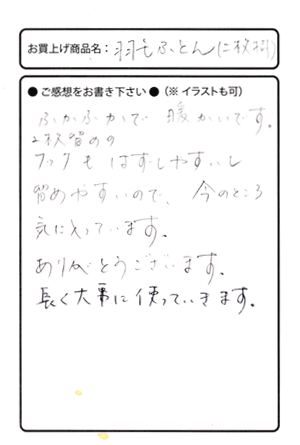 お買上げ商品名：羽毛ふとん(二枚揃)
● ご感想をお書き下さい ● (※ イラストも可)
ふかふかで 暖かいです。
2枚留めの
フックも はずしやすいし
留めやすいので、今のところ
気に入っています。
ありがとうございます。
長く大事に使っていきます。